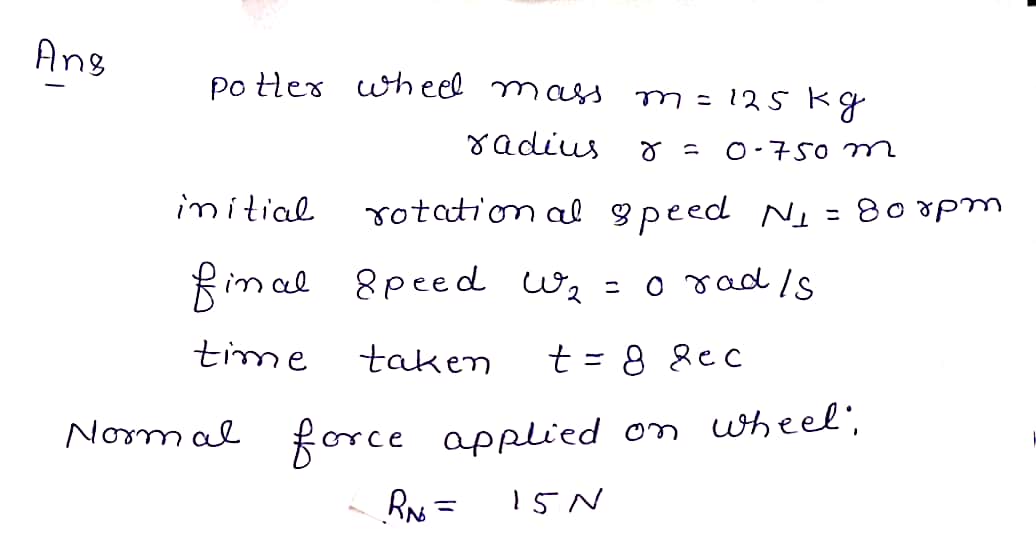 Ans
potter wheel mass m = 125 kg
radius r = 0.750 m
initial rotational speed N1 = 80 rpm
final speed ω2 = 0 rad/s
time taken t = 8 sec
Normal force applied on wheel;
RN = 15 N